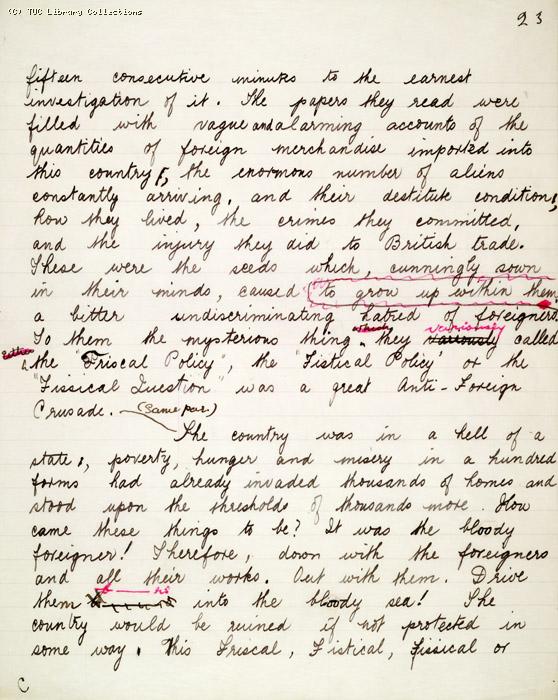 (C) TUC Library Collections
23
fifteen consecutive minutes to the earnest
investigation of it. The papers they read were
filled with vague and alarming accounts of the
quantities of foreign merchandise imported into
this country, the enormous number of aliens
constantly arriving, and their destitute conditions,
how they lived, the crimes they committed,
and the injury they did to British trade.
These were the seeds which, cunningly sown
in their minds, caused to grow up within them
a bitter undiscriminating hatred of foreigners.
To them the mysterious thing which they variously variously called
either the "Friscal Policy", the "Fistical Policy" or the
"Fissical Question" was a great Anti-Foreign
Crusade. (Same par.)
The country was in a hell of a
state, poverty, hunger and misery in a hundred
forms had already invaded thousands of homes and
stood upon the thresholds of thousands more. How
came these things to be? It was the bloody
foreigner! Therefore, down with the foreigners
and all their works. Out with them. Drive
them into the bloody sea! The
country would be ruined if not protected in
some way. This Friscal, Fistical, Fissical or
C